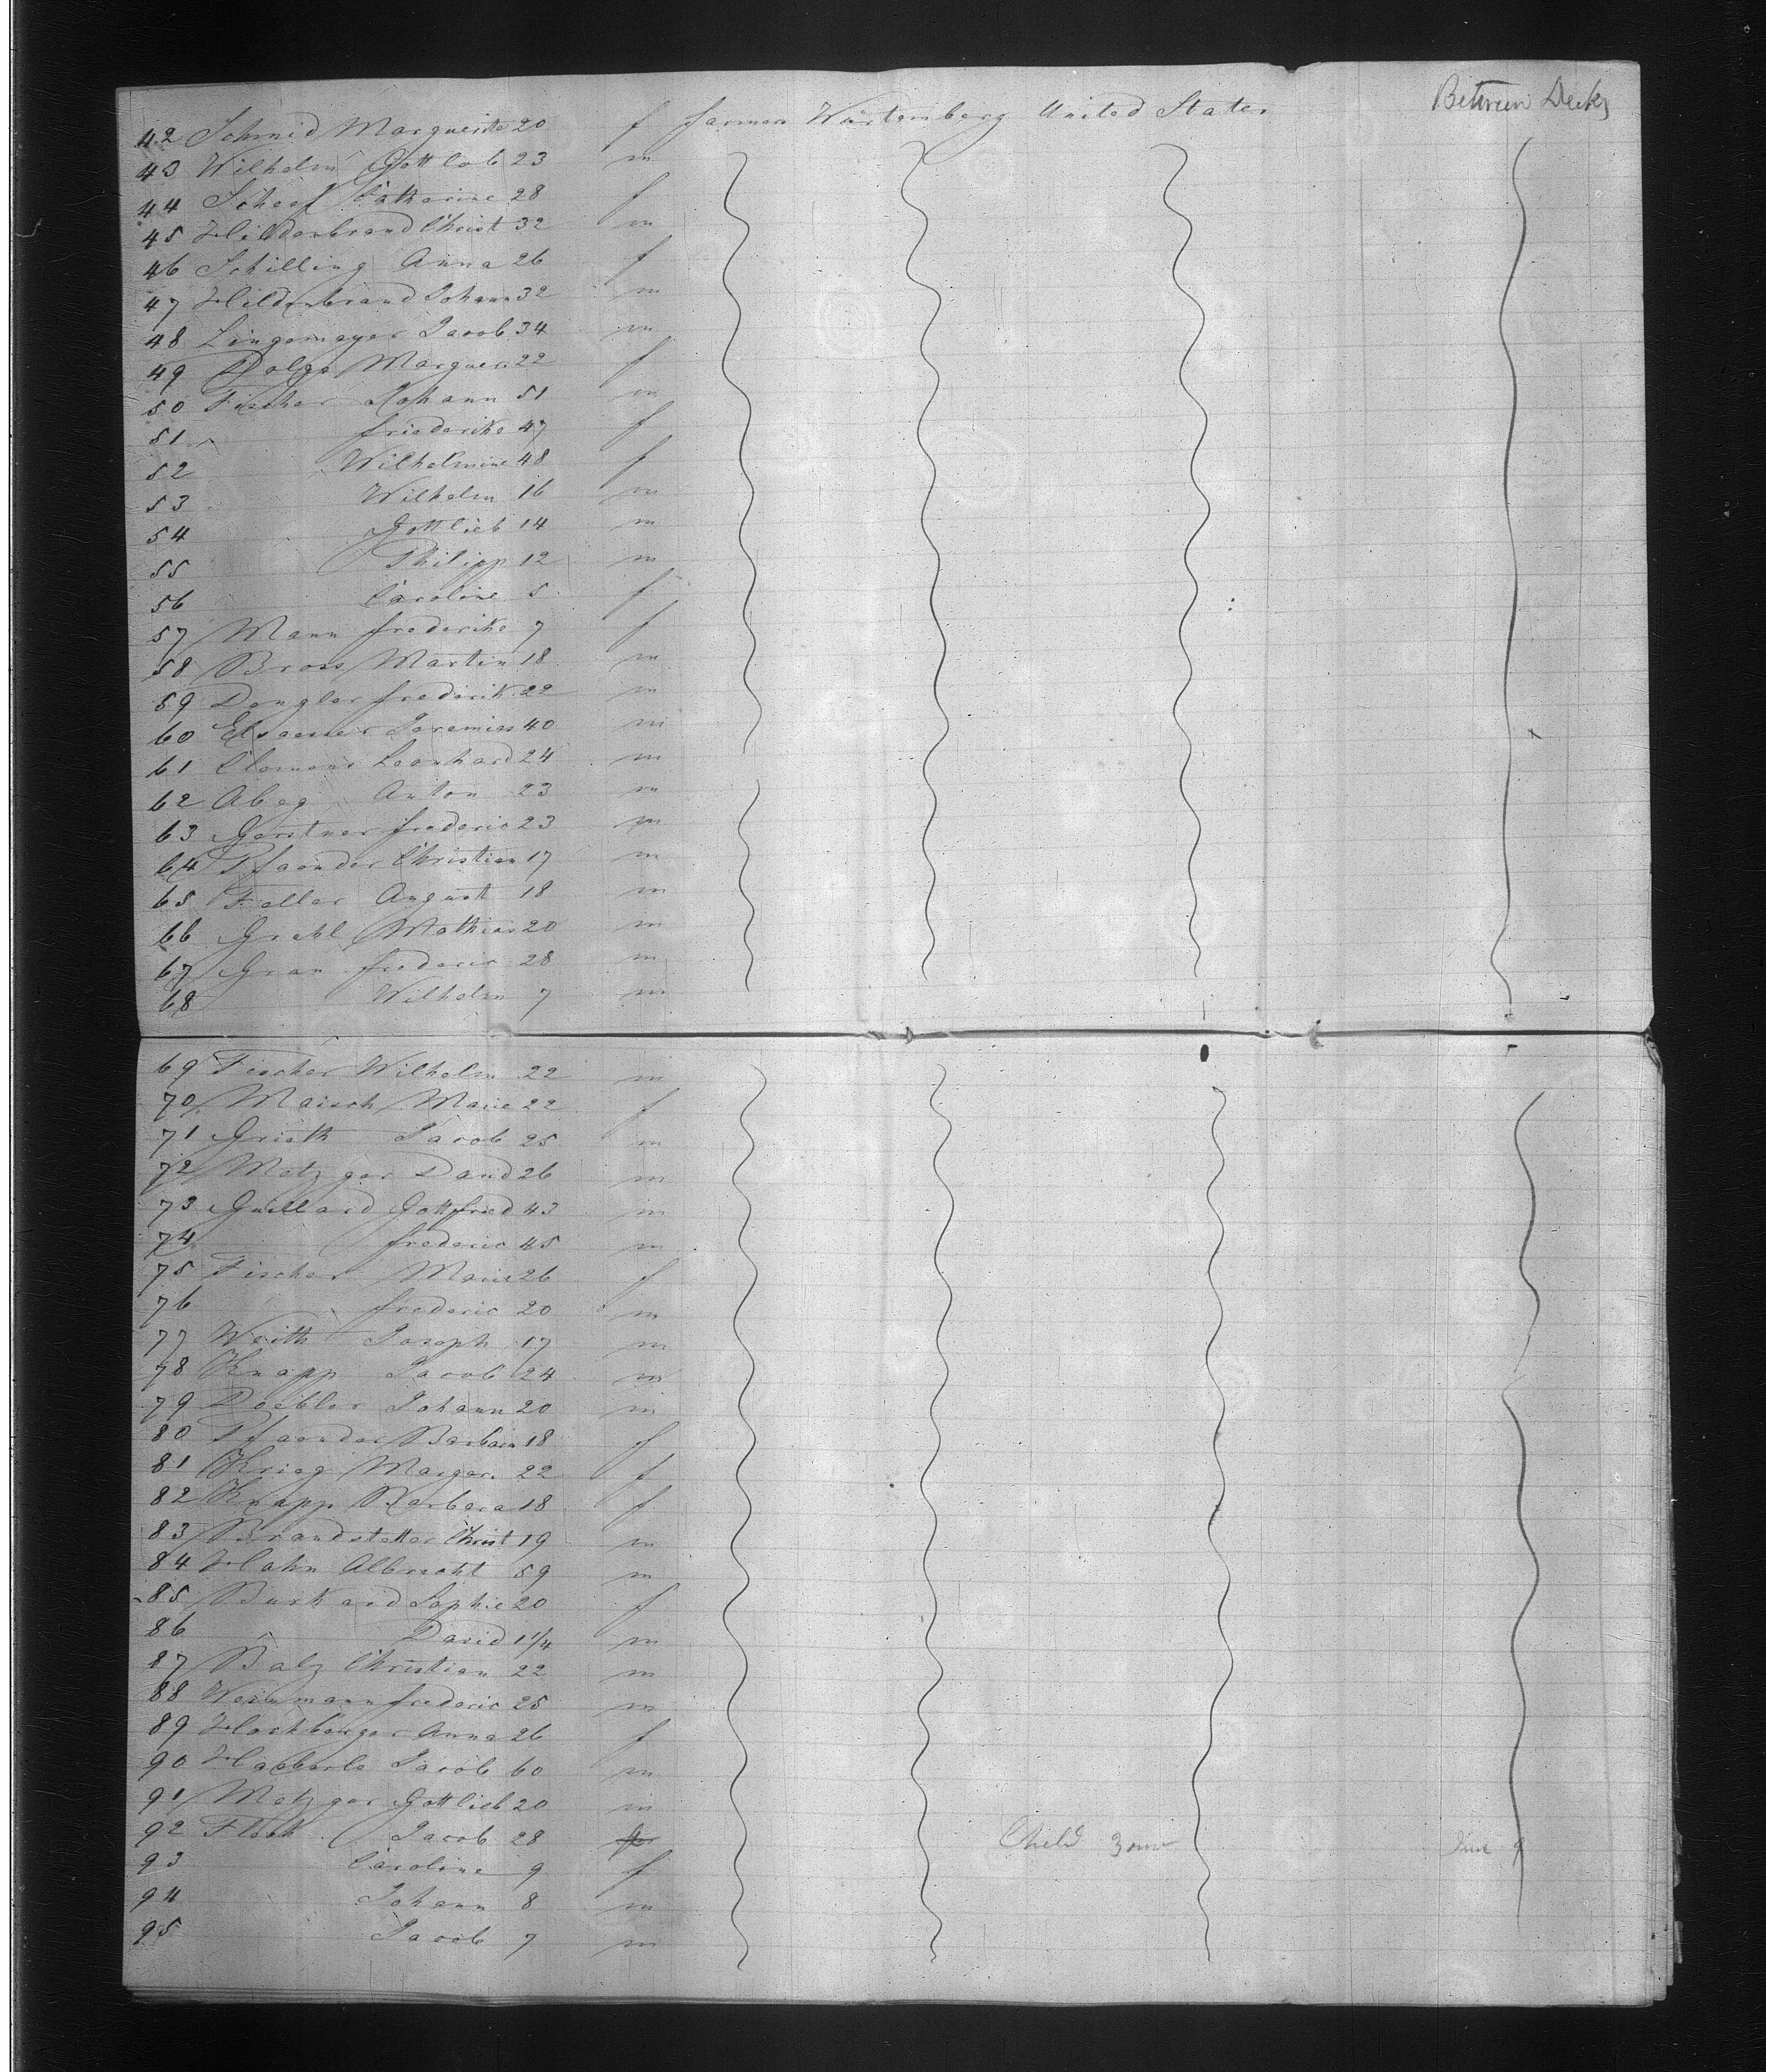 Between Decks
42 Schmid Marguerite 20 f farmer Würtemberg United States
43 Wilhelm Gottlob 23 m
44 Scheef Catharine 28 f
45 Hildenbrand Christ 32 m
46 Schilling Anna 26 f
47 Hildenbrand Johann 32 m
48 Lingemayer Jacob 34 m
49 Marguer. 22 f
50 Fischer Johann 51 m
51 friederike 47 f
52 Wilhelmine 48 f
53 Wilhelm 16 m
54 Gottlieb 14 m
55 Philipp 12 m
56 Caroline 5 f
57 Mann frederike 7 f
58 Bross Martin 18 m
59 Dengler frederik 22 m
60 Elsaesser Jeremias 40 m
61 Clemens Leonhard 24 m
62 Abeg Anton 23 m
63 Gerstner frederic 23 m
64 Pfaender Christian 17 m
65 Feller August 18 m
66 Grehl Mathias 20 m
67 Grau frederic 28 m
68 Wilhelm 7 m
69 Fischer Wilhelm 22 m
70 Maisch Marie 22 f
71 Grieth Jacob 25 m
72 Metzger David 26 m
73 Gottfried 43 m
74 frederic 45 m
75 Fischer Marie 26 f
76 frederic 20 m
77 Weith Joseph 17 m
78 Knapp Jacob 24 m
79 Doebler Johann 20 m
80 Pfaender Barbara 18 f
81 Krieg Marger. 22 f
82 Knapp Barbara 18 f
83 Brandstetter Christ 19 m
84 Hahn Albrecht 59 m
85 Burkard Sophie 20 f
86 David 1 1/4 m
87 Balz Christian 22 m
88 Weinmann frederic 25 m
89 Hochberger Anna 26 f
90 Haeberle Jacob 60 m
91 Metzger Gottlieb 20 m
92 Jacob 28 Child June 9
93 Caroline 9 f
94 Johann 8 m
95 Jacob 7 m